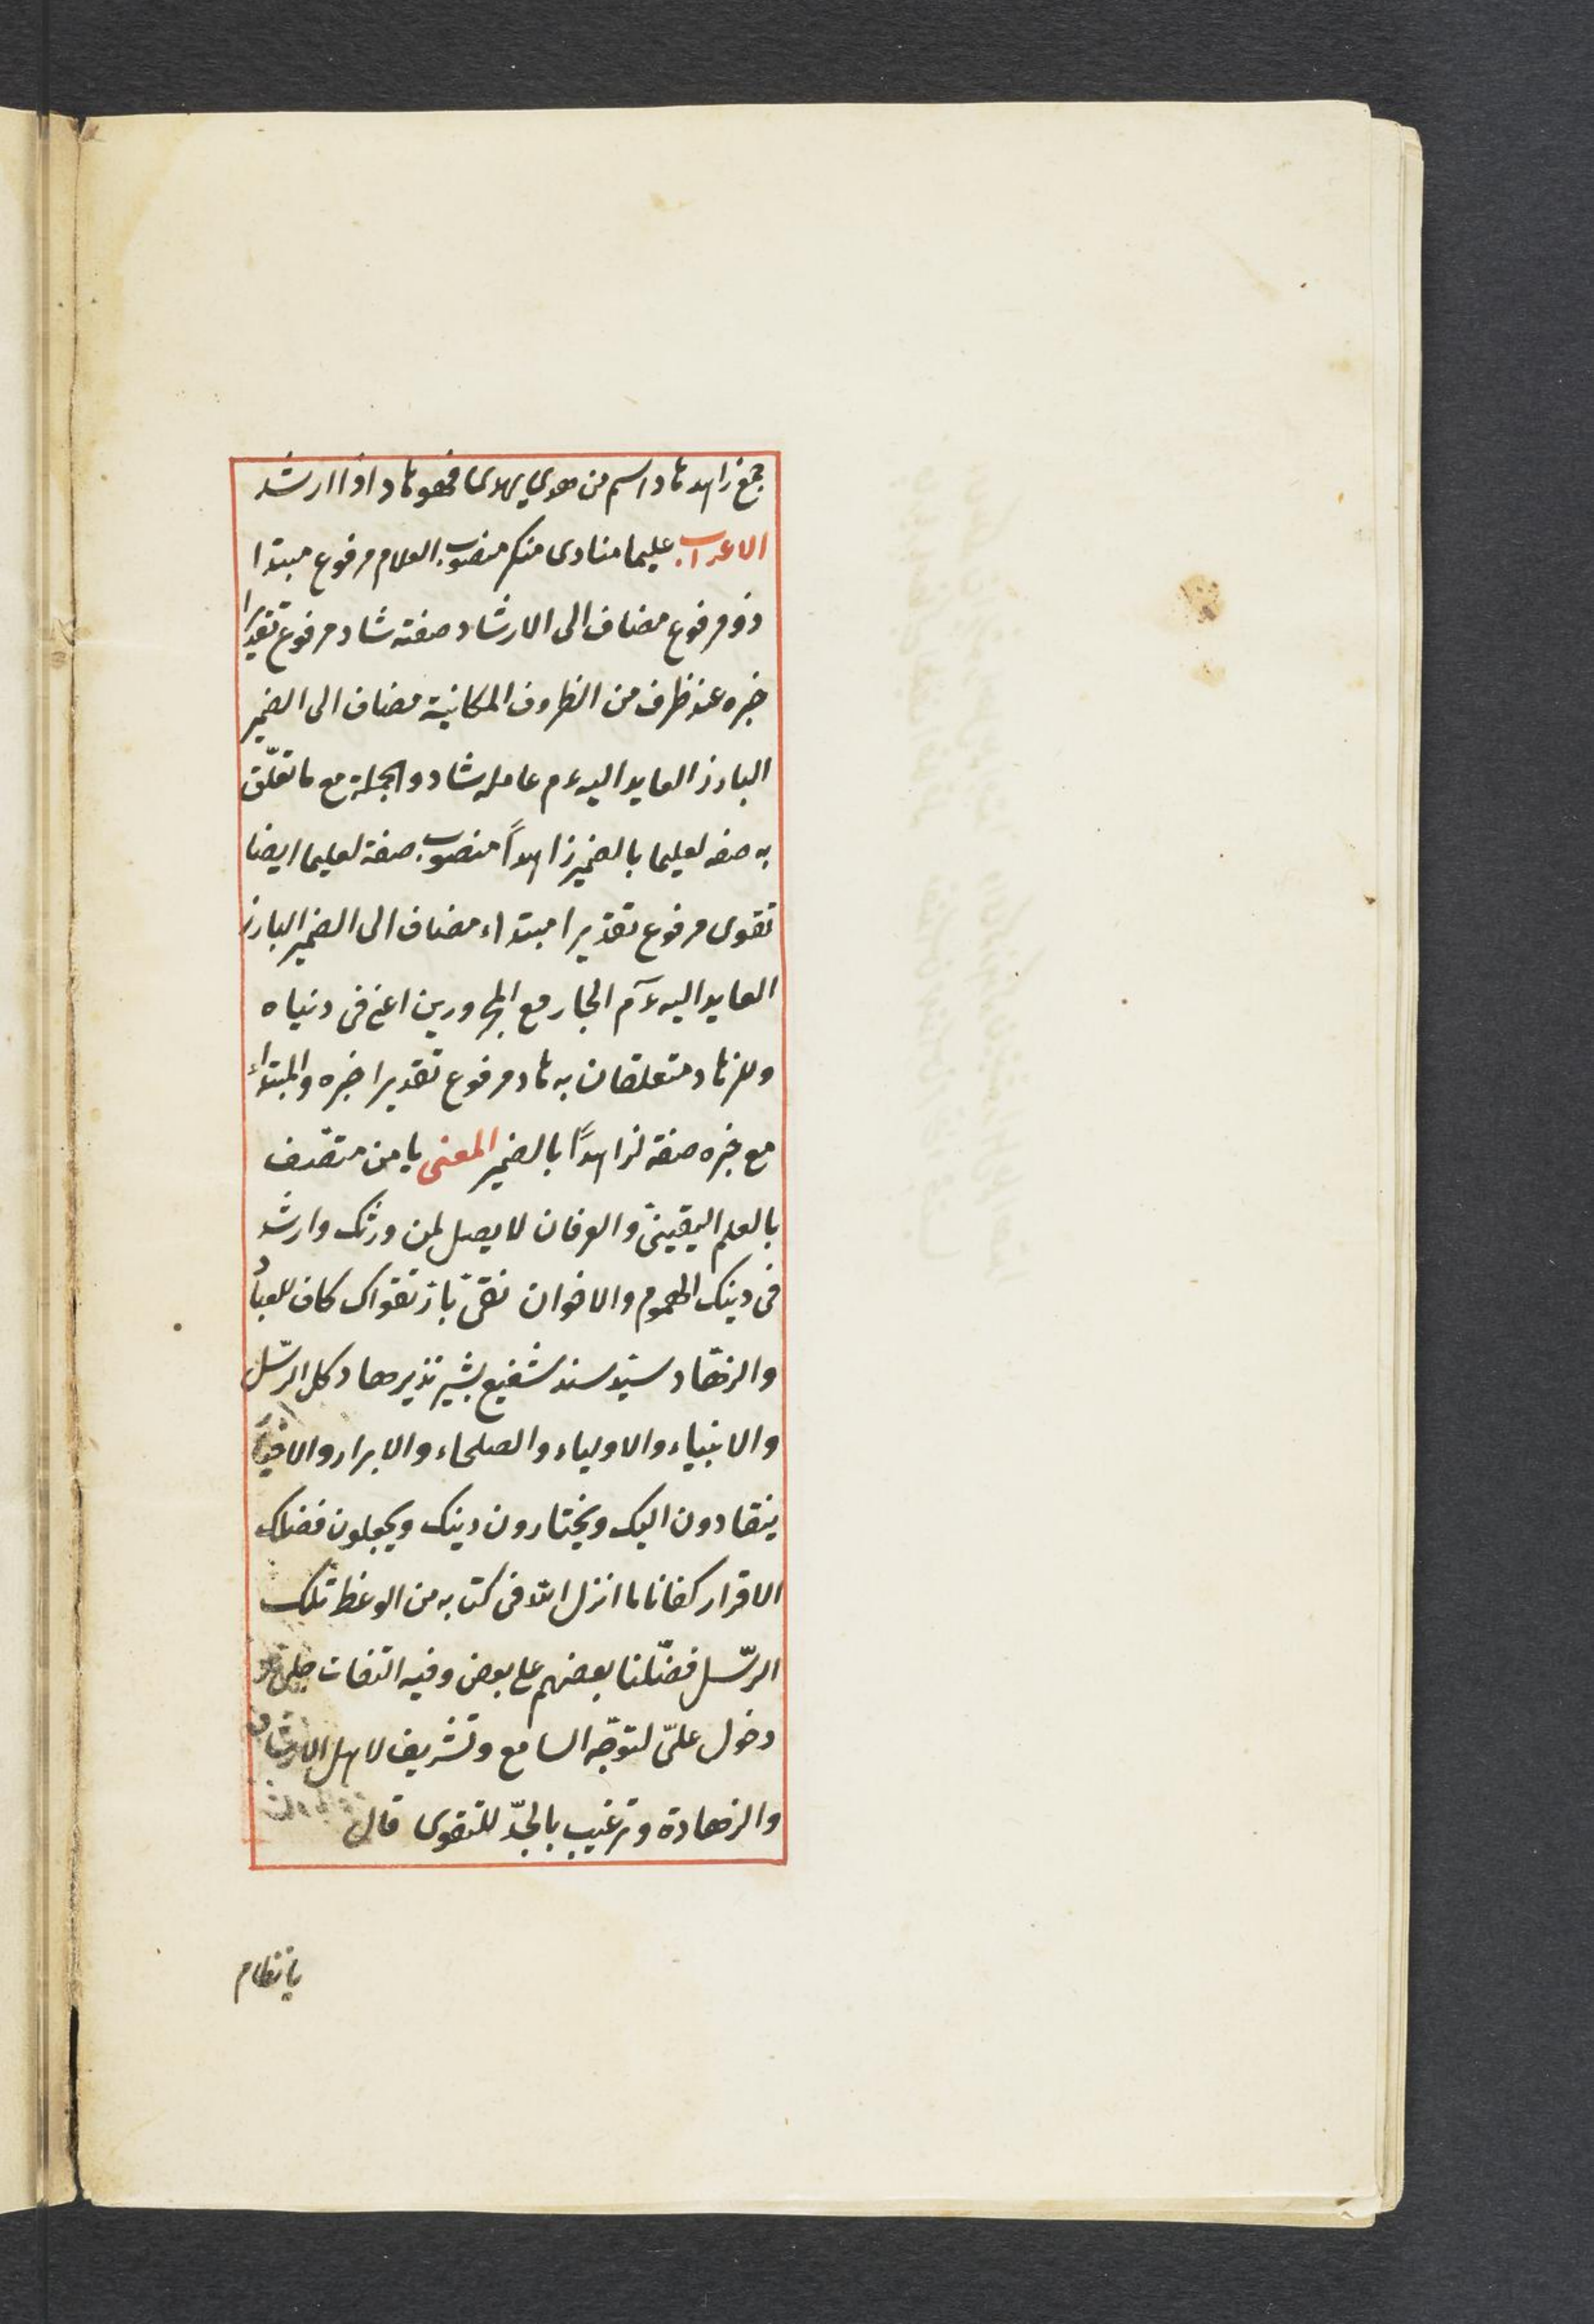 جمع زاهد هاد اسم من هدى يهدى فهو هاد اذا ارشد
الاعراب عليما منادى منكر منصوب العلام مرفوع مبتدا
ذو مرفوع مضاف الى الارشاد صفته شاد مرفوع تقديرا
خبره عند ظرف من الظروف المكانية مضاف الى الضمير
البارز العايد اليه عم عامله شاد والجملة مع ما تعلّق
به صفه لعليما بالضمير زاهداً منصوب صفة لعليما ايضا
تقوى مرفوع تقديرا مبتداء مضاف الى الضمير البارز
العايد اليه عم الجار مع المجرورين اعنى فى دنياه
وللزهاد متعلقان به هاد مرفوع تقديرا خبره والمبتداء
مع خبره صفة لزاهداً بالضمير المعنى يا من متصف
بالعلم اليقينىّ والعرفان لا يصل لمن ورثك وارشد
فى دينك الهموم والاخوان تقىّ تقواك كاف للعباد
والزهّاد سيّد سند شفيع بشير نذير هاد كل الرّسل
والانبياء والاولياء والصلحاء والابرار والاخيار
ينقادون اليك ويختارون دينك ويجعلون فضلك
الاقرار كفانا ما انزل الله فى كتابه من الوعظ تلك
الرّسل فضّلنا بعضهم على بعض وفيه التفات جلىّ و
دخول علىّ لتوجّه السامع وتشريف لاهل الارشاد
والزهادة وترغيب بالجدّ للتقوى قال
بانتظام